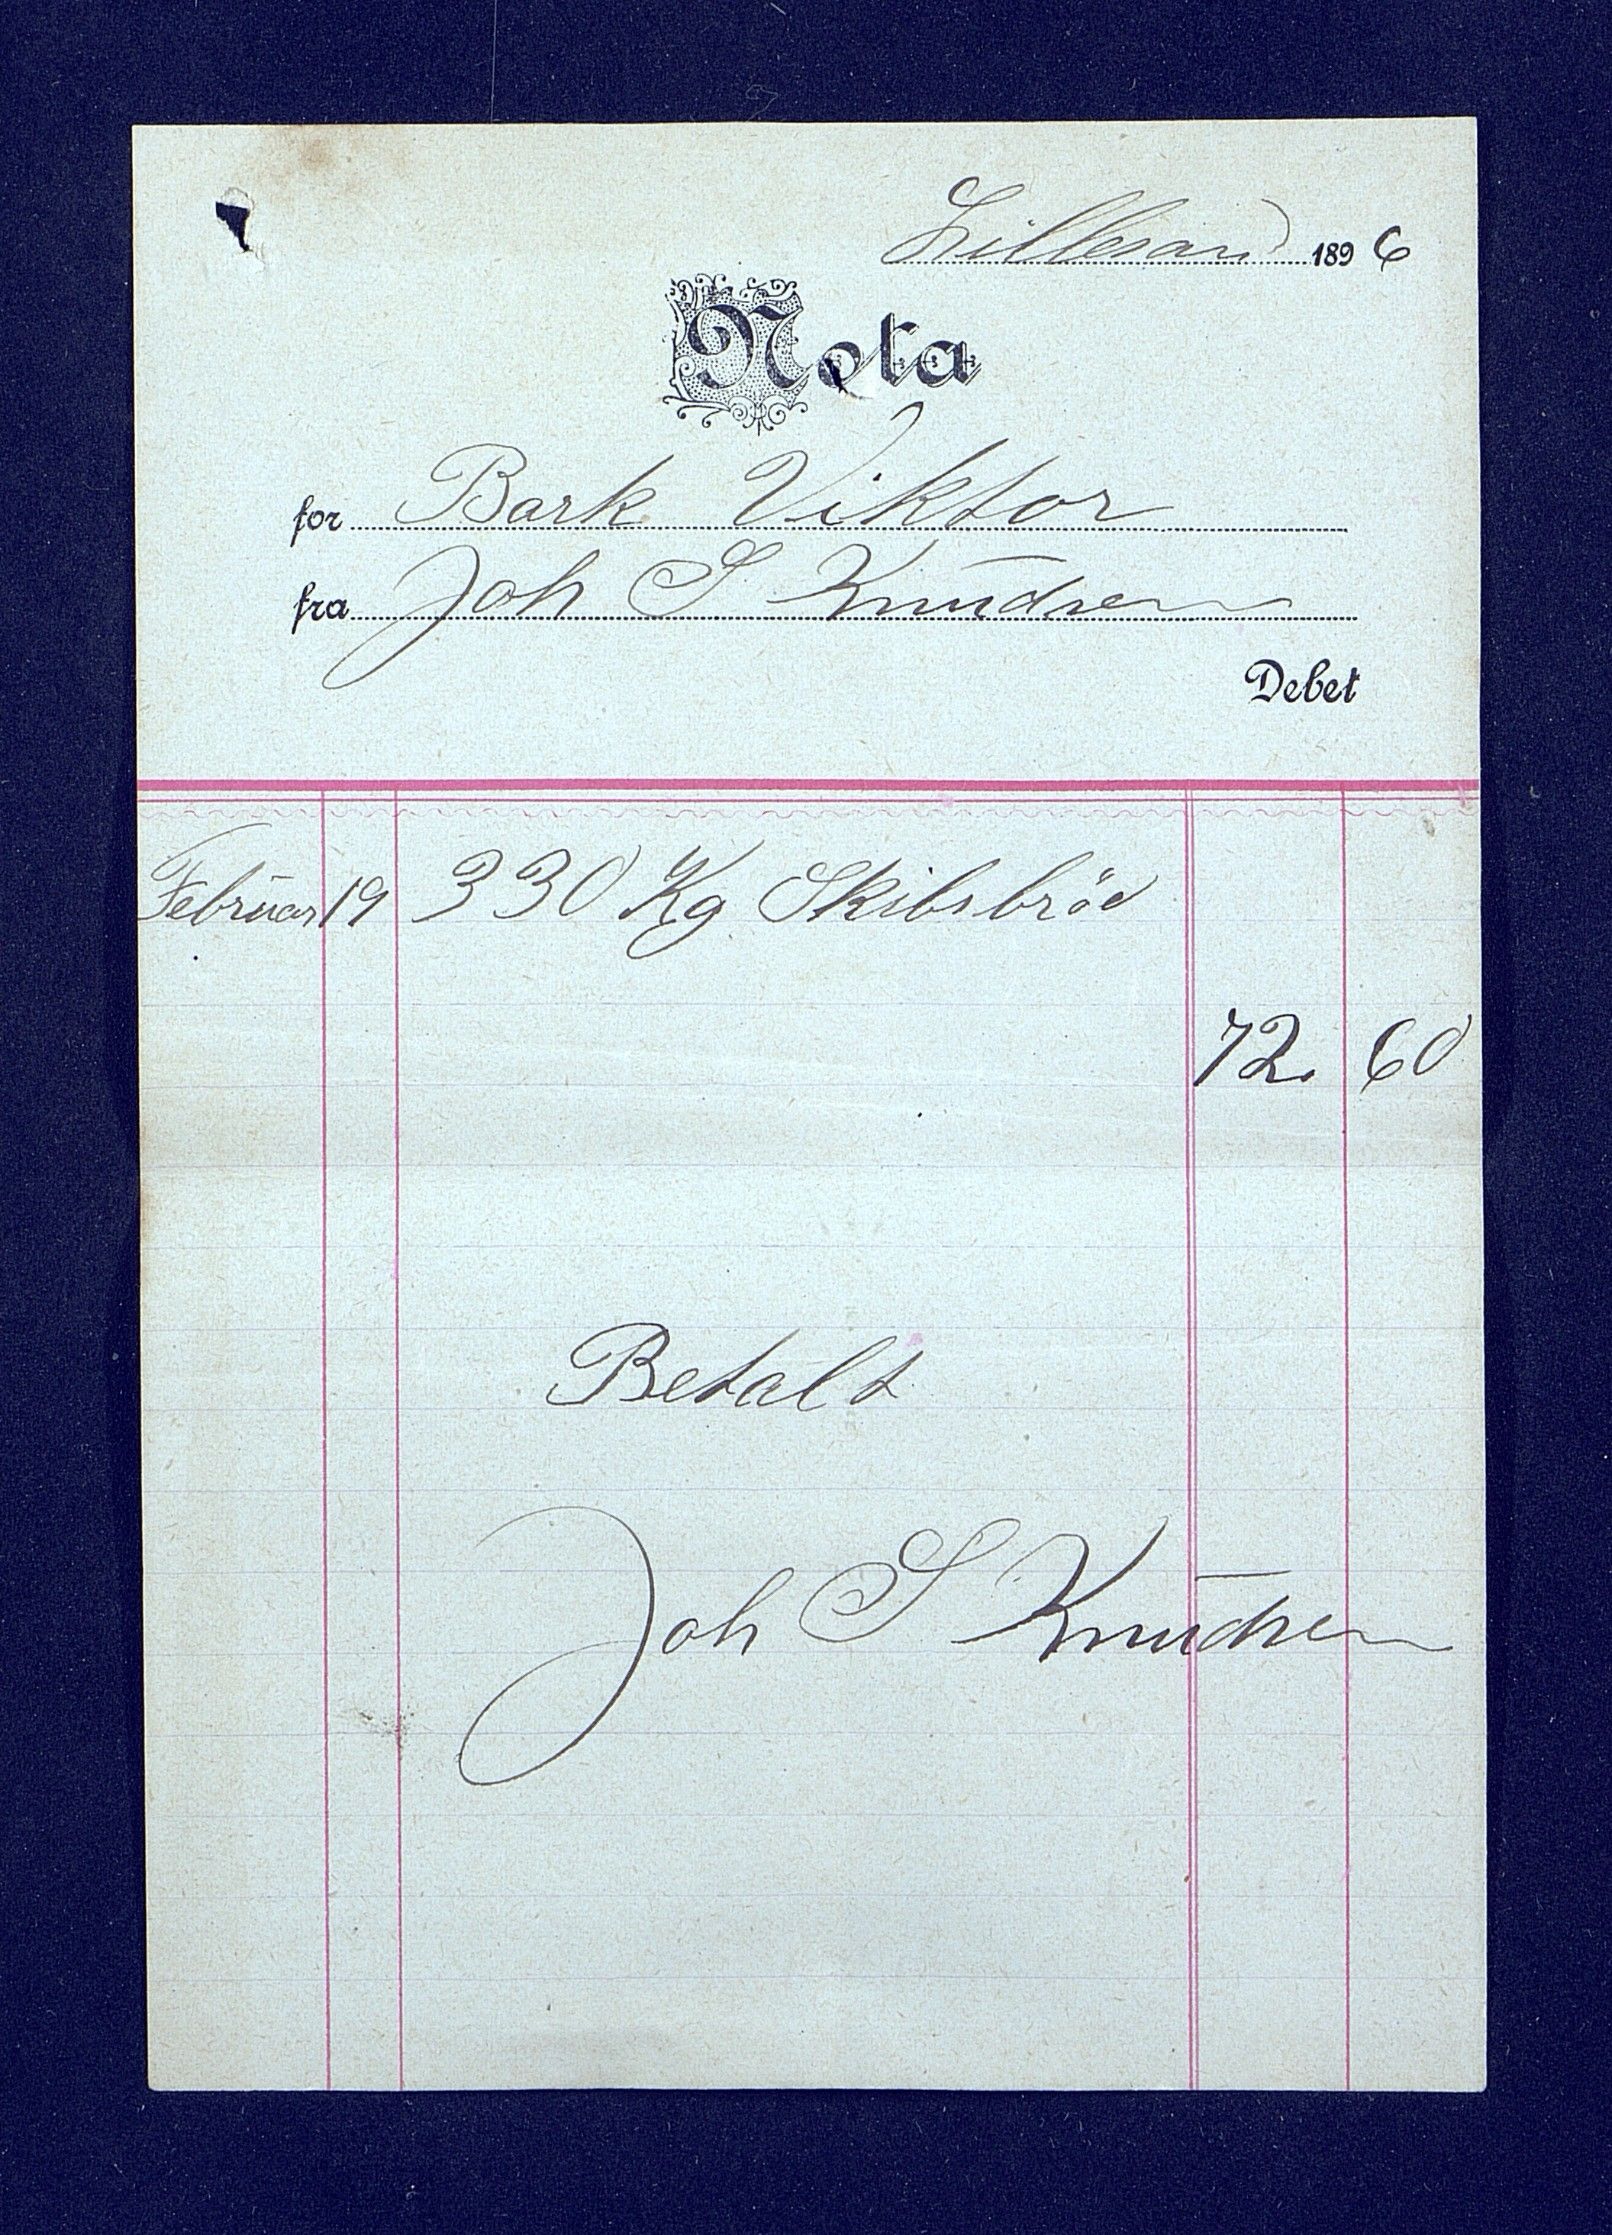 Lillesand 1896
Nota
for Bark Viktor
fra Joh S Knudsen
Debet
Februar 19 330 Kg Skibsbröd
72. 60
Betalt
Joh S Knudsen